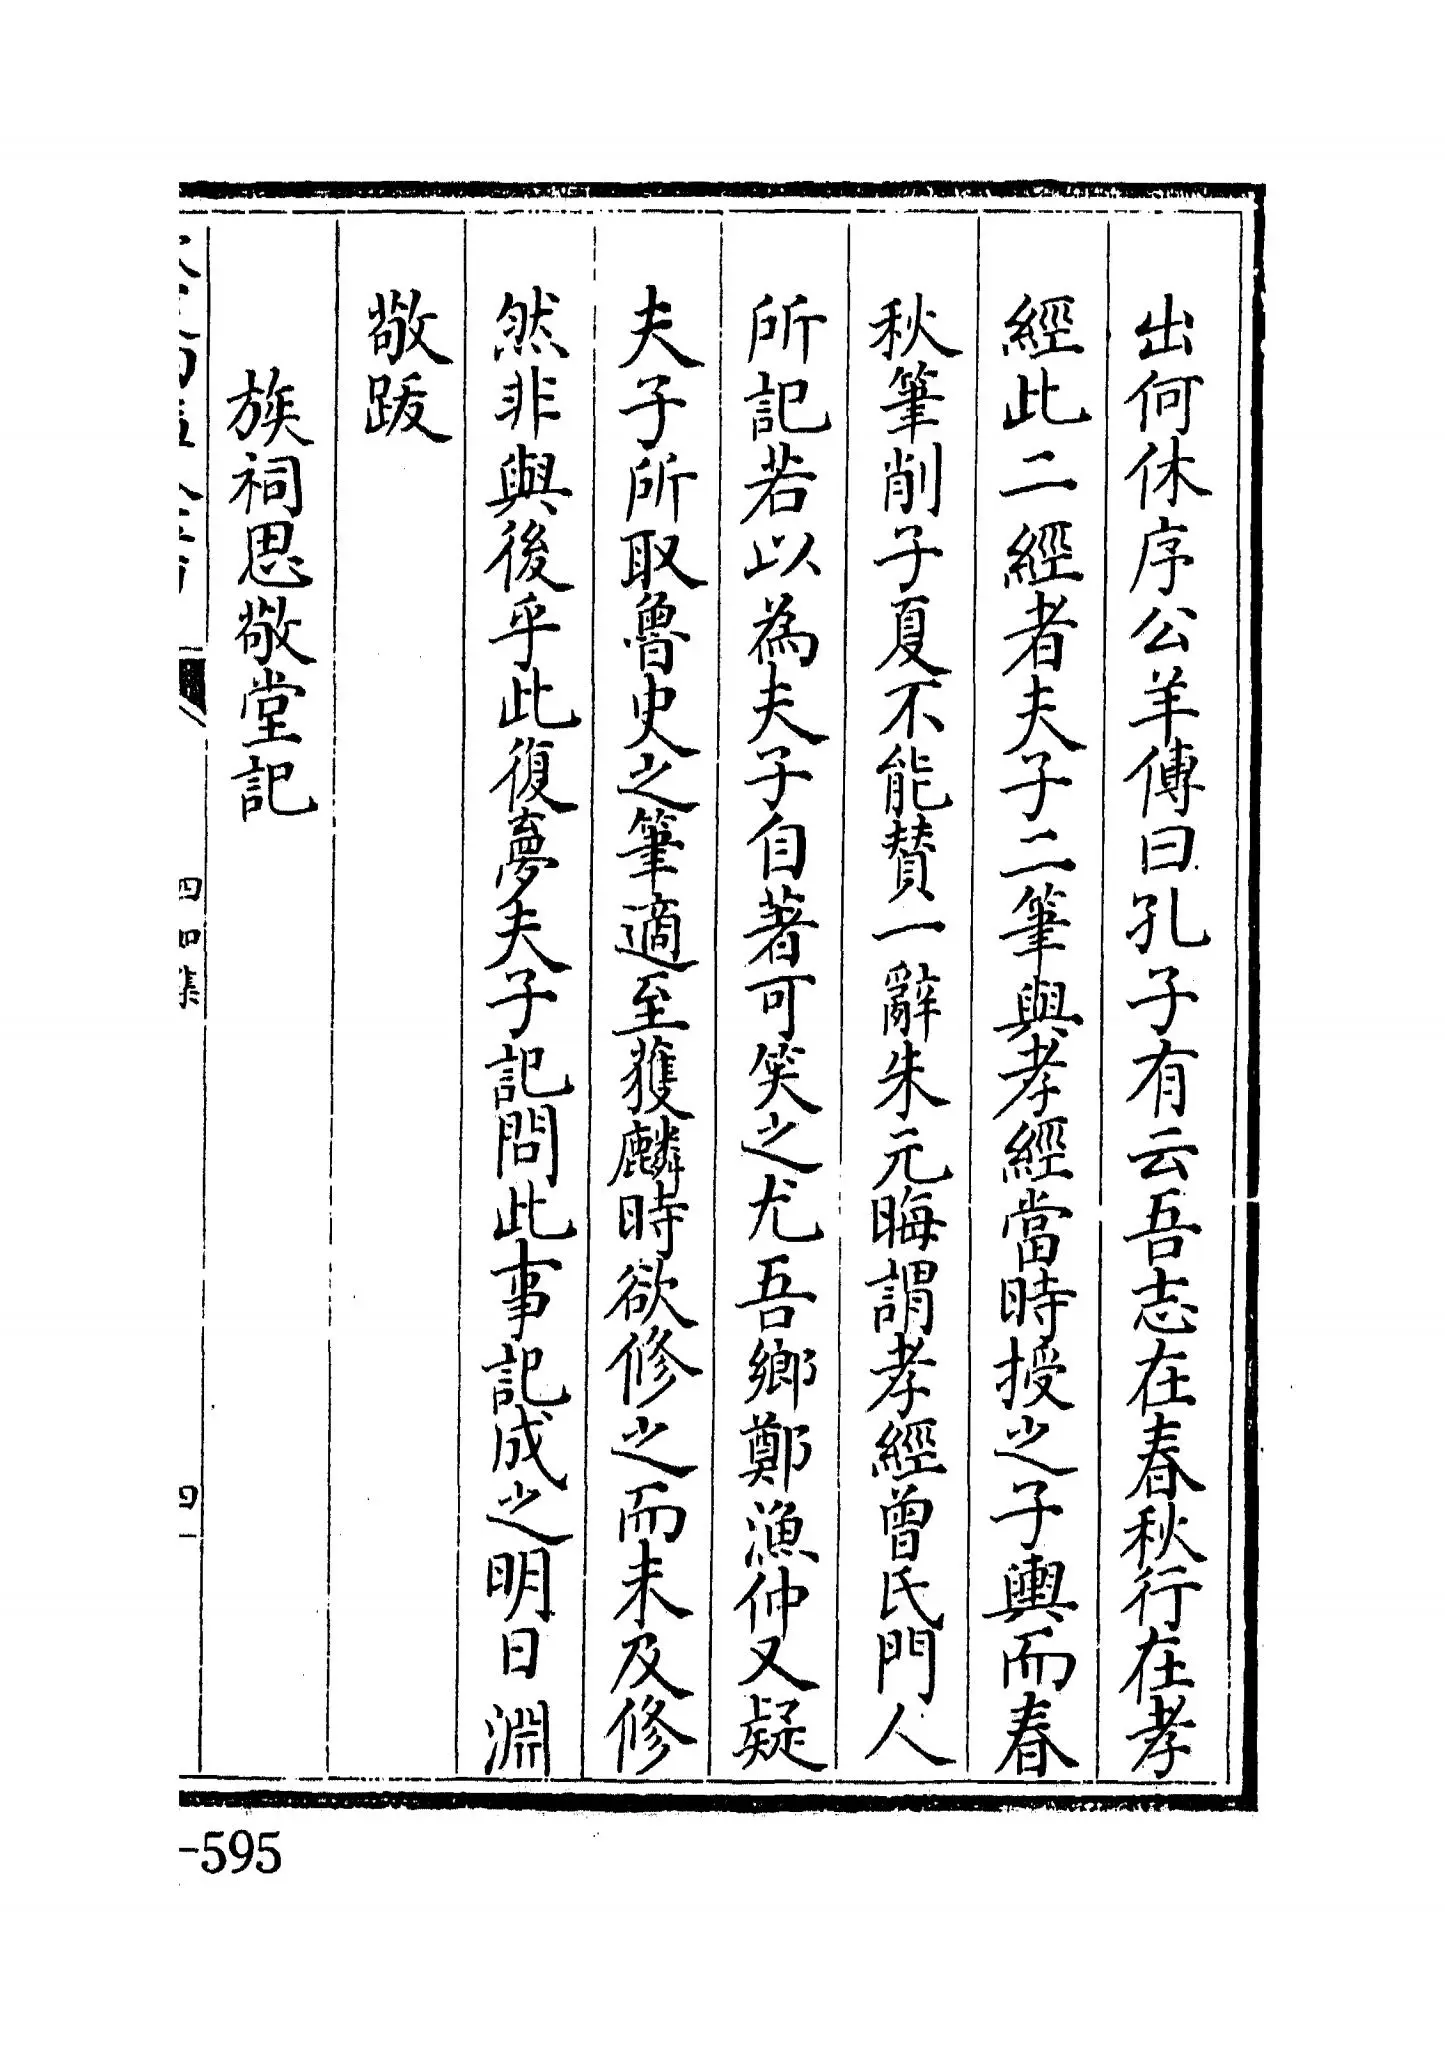 出何休序公羊傳曰孔子有云吾志在春秋行在孝
經此二經者夫子二筆與孝經當時授之子輿而春
秋筆削子夏不能贊一辭朱元晦謂孝經曾氏門人
所記若以為夫子自著可笑之尤吾鄉鄭漁仲又疑
夫子所取魯史之筆適至獲麟時欲修之而未及修
然非與後乎此復夢夫子記問此事記成之明日淵
敬跋
族祠思敬堂記
四如集
四
-595